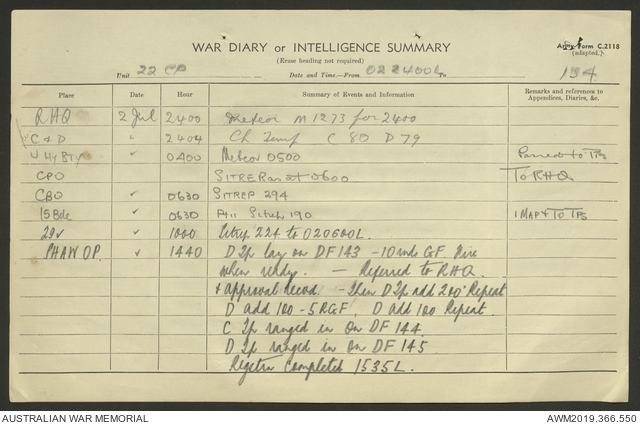 WAR DIARY or INTELLIGENCE SUMMARY
Army Form C.2118
(Erase heading not required)
(adapted.)
Unit 22 CP Date and Time—From 022400L To 134
Place Date Hour Summary of Events and Information Remarks and references to Appendices, Diaries, &c.
RHQ 2 Jul 2400 Meteor M 1273 for 2400
C & D " 2404 Ch Temp C 80 D 79
Hy Bty ✓ 0400 Meteor 0500 Passed to TPs
CPO SITREP as at 0600 To RHQ
CBO ✓ 0630 SITREP 294
15 Bde ✓ 0630 Sitrep 190 1 MAP & TO TPs
29 ✓ 1000 Sitrep 224 to 020600L.
PHAW OP. ✓ 1440 D Tp lay on DF 143 - 10 rds GF. Fire
when ready. — Referred to RHQ.
+ Approval recvd. - Then D Tp add 200' Repeat
D add 100 - 5 RGF. D add 100 Repeat.
C Tp ranged in on DF 144.
D Tp ranged in on DF 145
Completed 1535L.
AUSTRALIAN WAR MEMORIAL AWM2019.366.550